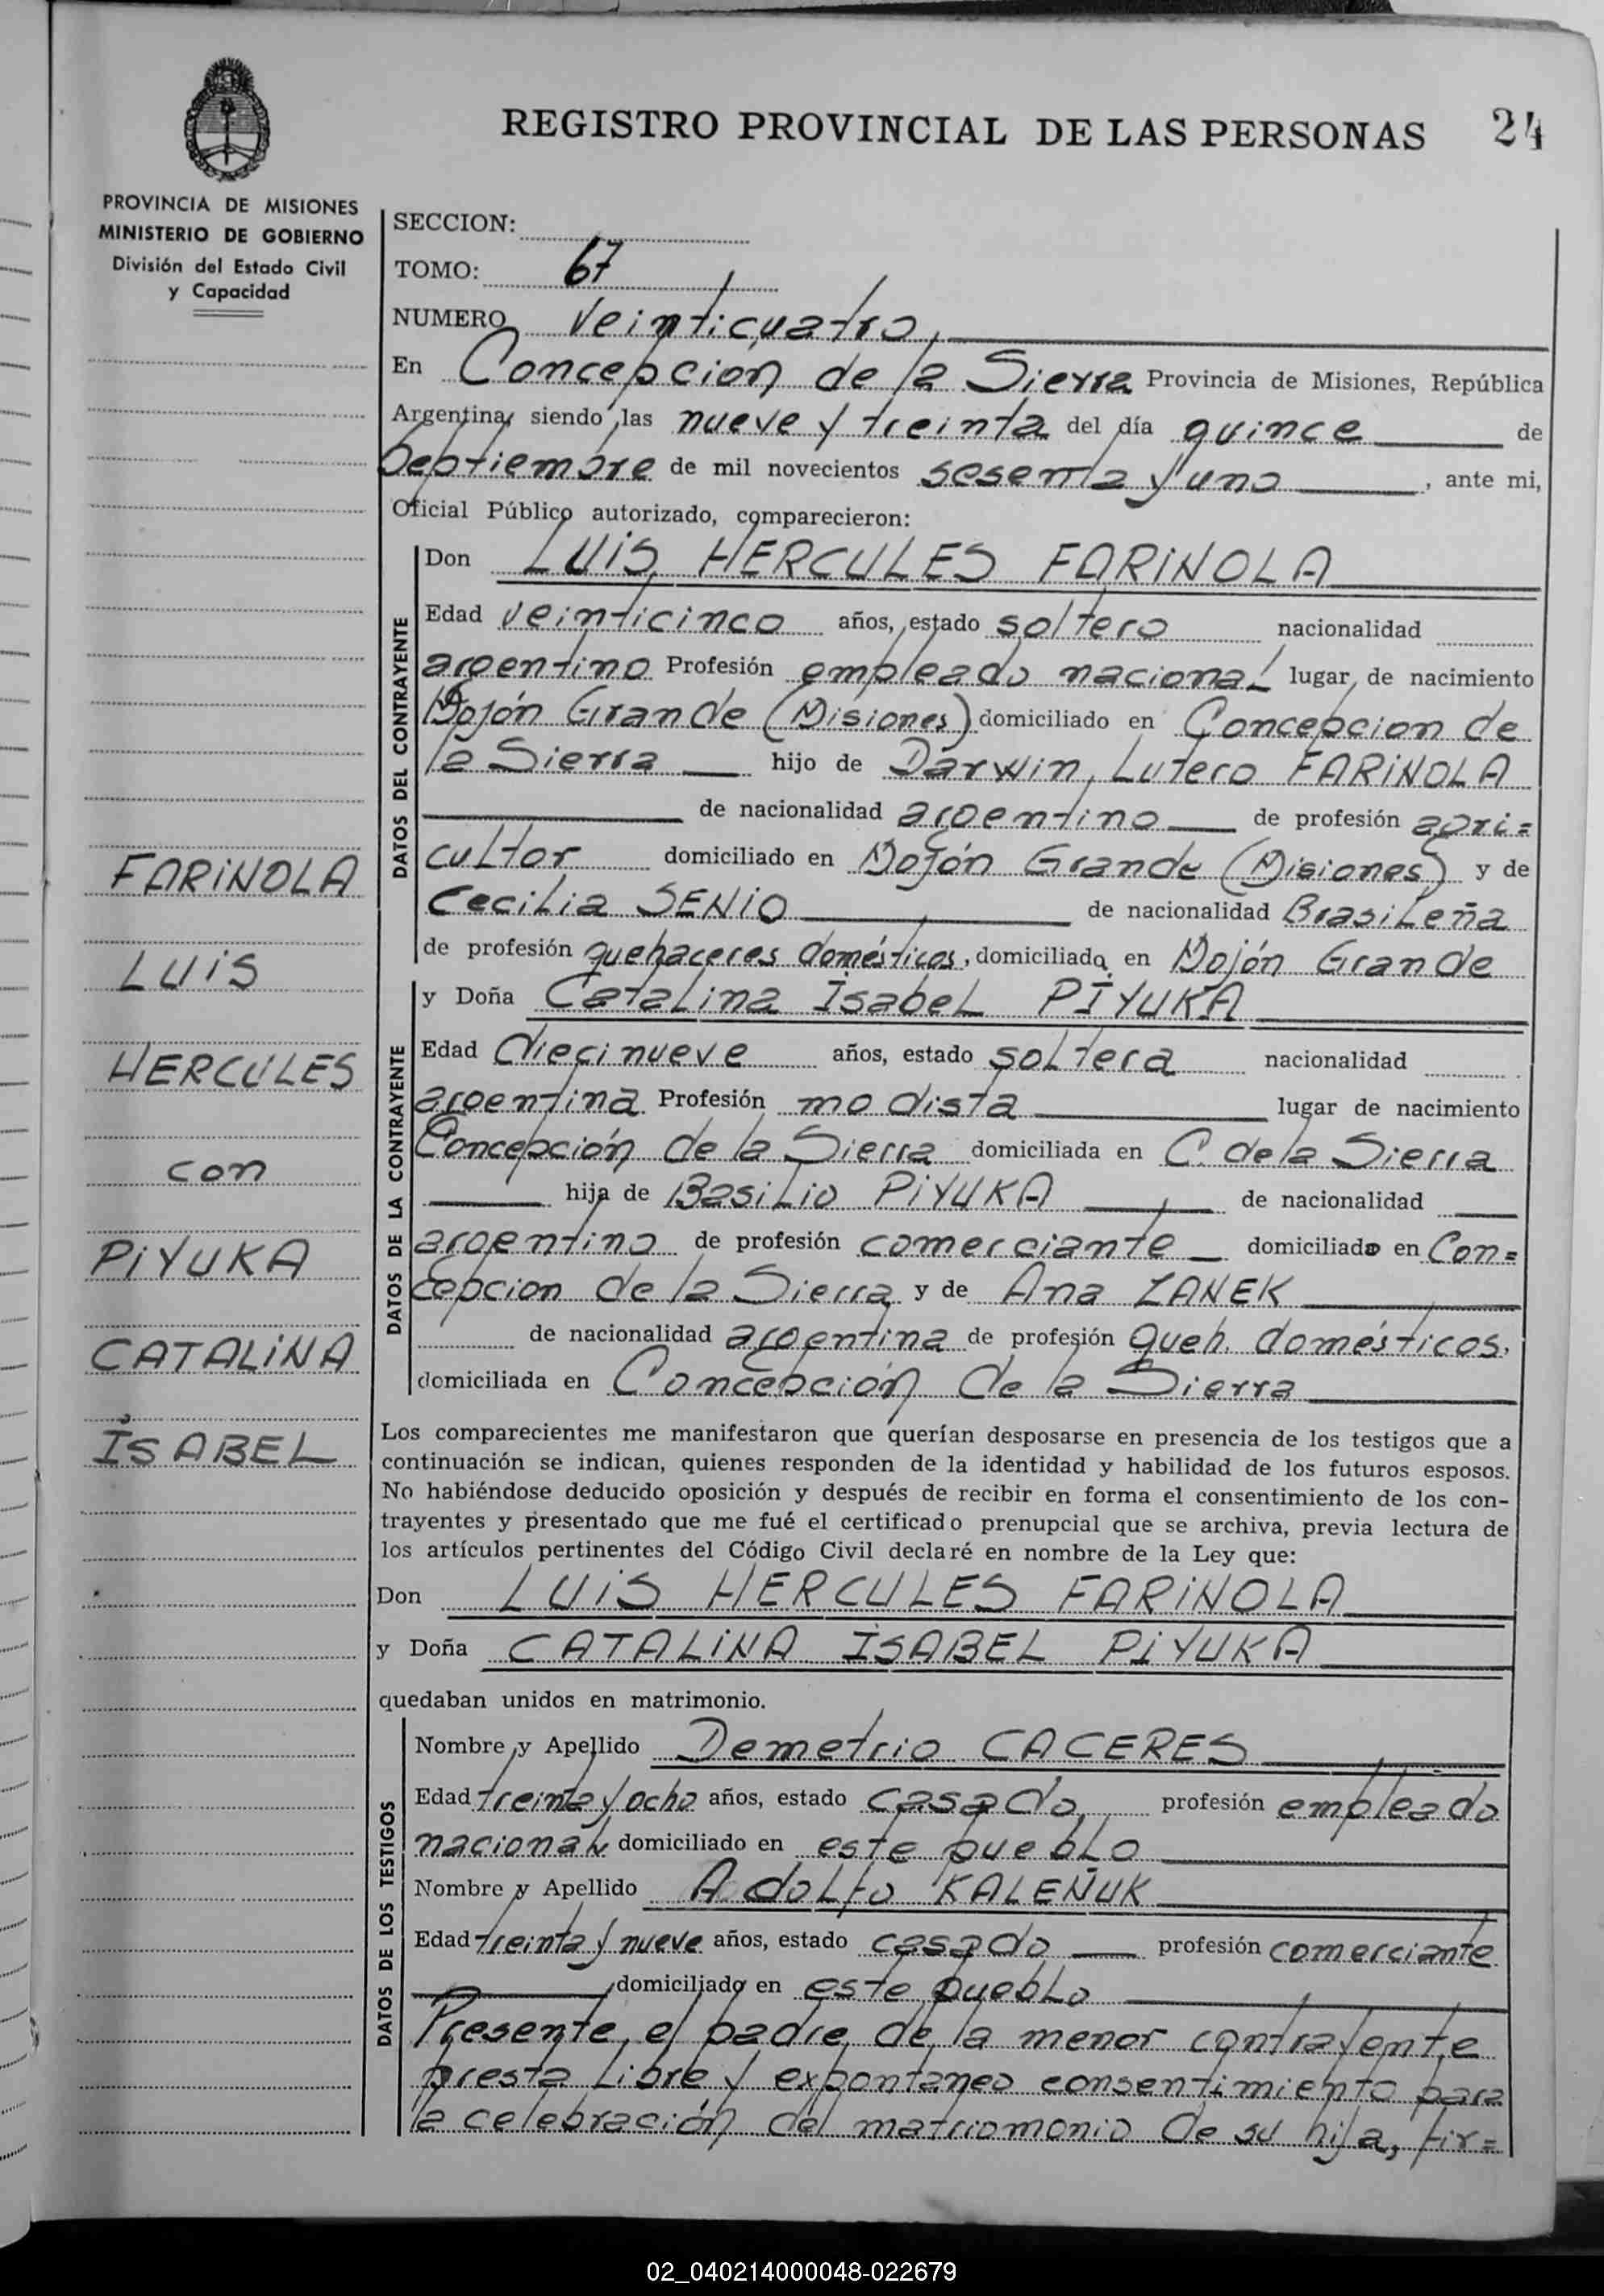 REGISTRO PROVINCIAL DE LAS PERSONAS 24
PROVINCIA DE MISIONES
MINISTERIO DE GOBIERNO
División del Estado Civil
y Capacidad
SECCION:
TOMO: 67
NUMERO veinticuatro,
En Concepción de la Sierra Provincia de Misiones, República
Argentina, siendo las nueve y treinta del día quince de
Septiembre de mil novecientos sesenta y uno, ante mi,
Oficial Público autorizado, comparecieron:
DATOS DEL CONTRAYENTE
Don LUIS HERCULES FARINOLA
Edad veinticinco años, estado soltero nacionalidad
argentino Profesión empleado nacional lugar de nacimiento
Mojón Grande (Misiones) domiciliado en Concepcion de
la Sierra hijo de Darwin Lutero FARINOLA
de nacionalidad argentino de profesión agri=
cultor domiciliado en Mojón Grande (Misiones) y de
Cecilia SENIO de nacionalidad Brasileña
de profesión quehaceres domésticos, domiciliada en Mojón Grande
DATOS DE LA CONTRAYENTE
y Doña Catalina Isabel PIYUKA
Edad Diecinueve años, estado soltera nacionalidad
argentina Profesión modista lugar de nacimiento
Concepción de la Sierra domiciliada en C. de la Sierra
hija de Basilio PIYUKA de nacionalidad
argentino de profesión comerciante domiciliado en Con=
cepcion de la Sierra y de Ana ZANEK
de nacionalidad argentina de profesión queh. domésticos,
domiciliada en Concepción de la Sierra
FARINOLA
LUIS
HERCULES
con
PIYUKA
CATALINA
ISABEL
Los comparecientes me manifestaron que querían desposarse en presencia de los testigos que a
continuación se indican, quienes responden de la identidad y habilidad de los futuros esposos.
No habiéndose deducido oposición y después de recibir en forma el consentimiento de los con-
trayentes y presentado que me fué el certificado prenupcial que se archiva, previa lectura de
los artículos pertinentes del Código Civil declaré en nombre de la Ley que:
Don LUIS HERCULES FARINOLA
y Doña CATALINA ISABEL PIYUKA
quedaban unidos en matrimonio.
DATOS DE LOS TESTIGOS
Nombre y Apellido Demetrio CACERES
Edad treinta y ocho años, estado casado, profesión empleado
nacional domiciliado en este pueblo
Nombre y Apellido Adolfo KALEÑUK
Edad treinta y nueve años, estado casado profesión comerciante
domiciliado en este pueblo
Presente el padre de la menor contrayente
presta libre y expontaneo consentimiento para
la celebración del matriomonio de su hija, fir=
02_040214000048-022679